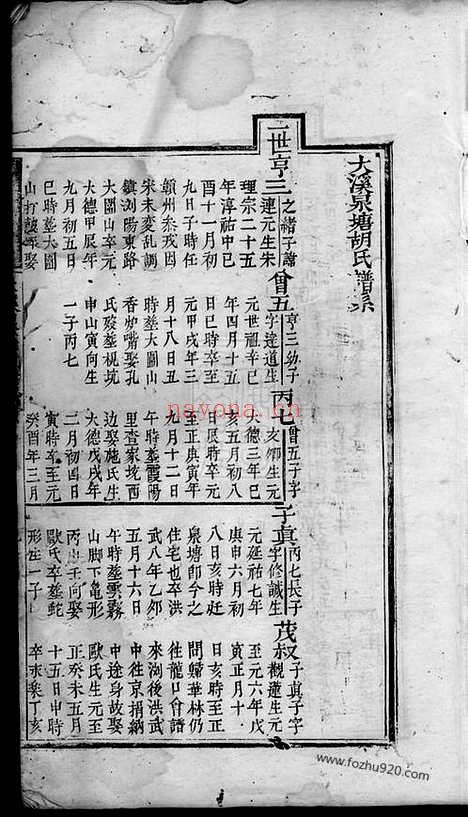 大溪泉塘胡氏譜系
一世
亨三
之緒子諱
連元生宋
理宗二十五
年淳祐中已
酉十一月初
九日子時任
贛州叅戎因
宋末変乱調
鎮浏陽東路
大圍山卒元
大德甲辰年
九月初五日
巳時塟大圍
山打皷
娶
曾五
亨三幼子
字逹道生
元世祖辛巳
年四月十五
日巳時卒至
元甲戌年三
月十八日丑
時塟大圖山
香炉嘴娶孔
氏殁塟梘坑
申山寅向生
一子丙七
丙七
曾五子字
亥卿生元
大德三年已
亥五月初八
日辰時卒元
至正庚寅年
九月十二日
午時塟霞陽
里查家坑西
边娶施氏生
大德戊戌年
二月初四日
寅時卒至元
癸酉年三月
子真
丙七長子
字修誠生
元延祐七年
庚申六月初
八日亥時廷
泉塘即今之
住宅也卒洪
武八年乙卯
五月十六日
午時塟雲霧
山脚下亀形
丙山壬向娶
歐氏卒塟蛇
形生一子
茂叔
子真子字
觀蓮生元
至元六年戊
寅正月十
日亥時至正
問歸華林仍
往龍口會譜
來浏後洪武
申徃京捐納
中途身故娶
歐氏生元至
正癸未五月
十五日申時
辛未癸丁亥
nayona.cn
www.fozhu920.com